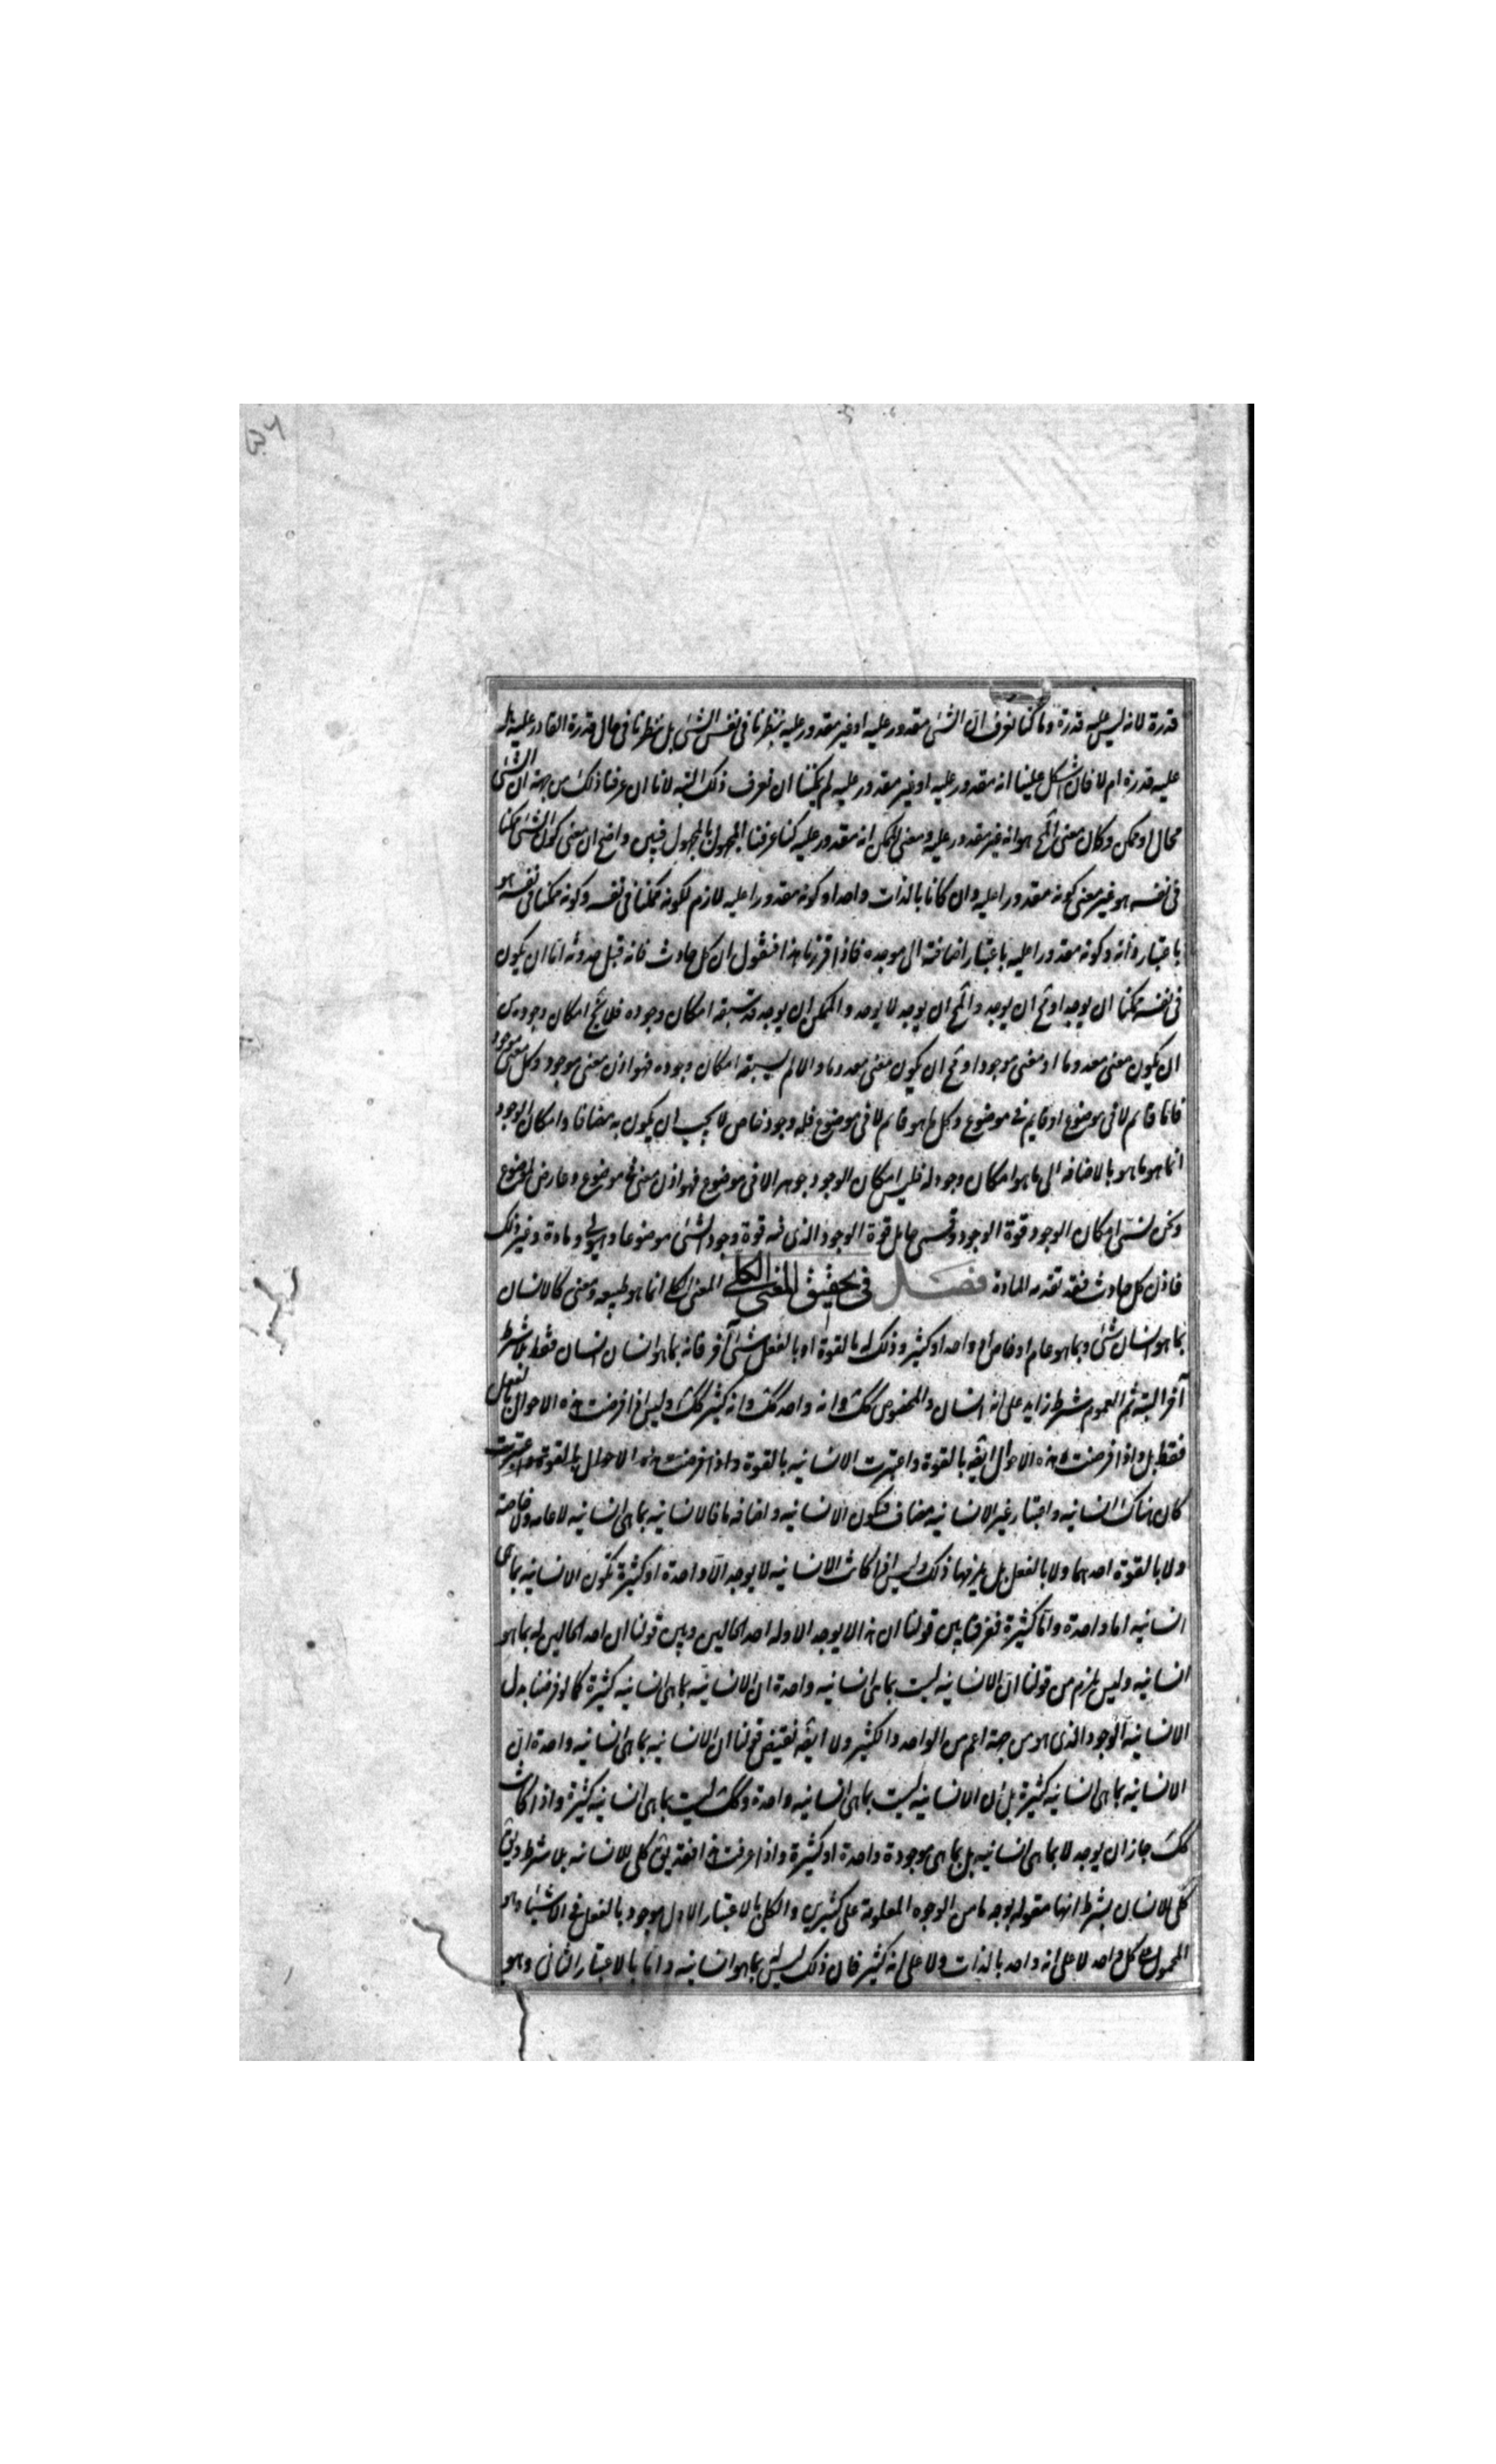 قدرة لانه ليس عليه قدرة وما كنا نعرف ان الشئ مقدور عليه او غير مقدور عليه بنظرنا فى نفس الشئ بل بنظرنا فى حال قدرة القادر عليه هل له
عليه قدرة ام لا فان اشكل علينا انه مقدور عليه او غير مقدور عليه لم يمكننا ان نعرف ذلك البتة لانا ان عرفنا ذلك من جهة ان الشئ
محال او ممكن وكان معنى المح هو انه غير مقدور عليه ومعنى الممكن انه مقدور عليه كنا عرفنا المجهول بالمجهول فبين واضح ان معنى كون الشئ ممكنا
فى نفسه هو غير معنى كونه مقدورا عليه وان كانا بالذات واحدا وكونه مقدورا عليه لازم لكونه ممكنا فى نفسه وكونه ممكنا فى نفسه هو
باعتبار ذاته وكونه مقدورا عليه باعتبار اضافته الى موجده فاذا قررنا هذا فنقول ان كل حادث فانه قبل حدوثه اما ان يكون
فى نفسه ممكنا ان يوجد او مح ان يوجد والمح ان يوجد لا يوجد والممكن ان يوجد قد سبقه امكان وجوده فلا يخ امكان وجوده من
ان يكون معنى معدوما او معنى موجودا ومح ان يكون معنى معدوما والا لم يسبقه امكان وجوده فهو اذن معنى موجود وكل معنى موجود
فاما قائم لا فى موضوع او قايم فى موضوع وكل ما هو قائم لا فى موضوع فله وجود خاص لا يجب ان يكون به مضافا وامكان الوجود
انما هو ما هو بالاضافه الى ما هو امكان وجود له فليس امكان الوجود جوهرا لا فى موضوع فهو اذن معنى فى موضوع وعارض لموضوع
ونحن نسمى امكان الوجود قوة الوجود ونسمى حامل قوة الوجود الذى فيه قوة وجود الشئ موضوعا وهيولى ومادة وغير ذلك
فاذن كل حادث فقد تقدمه المادة فصل فى تحقيق المعنى الكلى المعنى الكلى انما هو طبيعه ومعنى كالانسان
بما هو انسان شئ وبما هو عام او خاص او واحد او كثير وذلك له بالقوة او بالفعل شئ آخر فانه بما هو انسان انسان فقط بلا شرط
آخر البتة ثم العموم شرط زايد على انه انسان والخصوص كك وانه واحد كك وانه كثير كك وليس اذا فرضت هذه الاحوال بالفعل
فقط بل واذا فرضت هذه الاحوال ايضا بالقوة واعتبرت الانسانيه بالقوة واذا فرضت هذه الاحوال بالقوة واعتبرت
كان هناك انسانيه واعتبار غير الانسانيه مضاف فتكون الانسانيه واضافه ما فالانسانيه بما هى انسانيه لا عامه ولا خاصة
ولا بالقوة احدهما ولا بالفعل بل يلزمها ذلك وليس اذا كانت الانسانيه لا يوجد الا واحدة او كثيرة تكون الانسانيه بما هى
انسانيه اما واحدة واما كثيرة ففرق بين قولنا ان هذا لا يوجد الا وله احد الحالين وبين قولنا ان احد الحالين له بما هو
انسانيه وليس يلزم من قولنا ان الانسانيه ليست بما هى انسانيه واحدة ان الانسانيه بما هى انسانيه كثيرة كما لو فرضنا بدل
الانسانيه الوجود الذى هو من جهة اعم من الواحد والكثير ولا ايضا نقيض قولنا ان الانسانيه بما هى انسانيه واحدة ان
الانسانيه بما هى انسانيه كثيرة بل ان الانسانيه ليست بما هى انسانيه واحدة وكك ليست بما هى انسانيه كثيرة واذا كانت
كك جاز ان يوجد لا بما هى انسانيه بل بما هى موجودة واحدة او كثيرة واذا عرفت هذا فقد يق كلى للانسانيه بلا شرط ويق
كلى للانسان بشرط انها مقوله بوجه ما من الوجوه المعلومة على كثيرين والكلى بالاعتبار الاول موجود بالفعل فى الاشياء وهو
المحمول على كل واحد لا على انه واحد بالذات ولا على انه كثير فان ذلك ليس له بما هو انسانيه واما بالاعتبار الثانى وهو